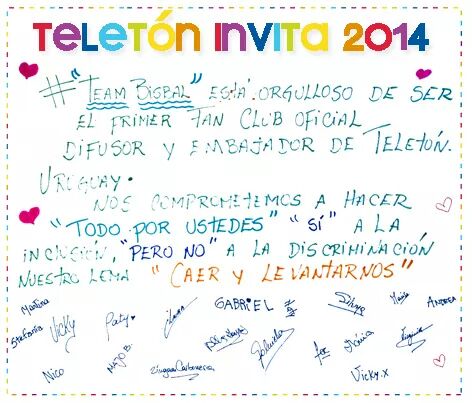 TELETÓN INVITA 2014
#"TEAM BISBAL" ESTÁ ORGULLOSO DE SER
EL PRIMER FAN CLUB OFICIAL
DIFUSOR Y EMBAJADOR DE TELETÓN.
URUGUAY.
NOS COMPROMETEMOS A HACER
"TODO POR USTEDES" "SÍ" A LA
INCLUSIÓN, "PERO NO" A LA DISCRIMINACIÓN
NUESTRO LEMA "CAER Y LEVANTARNOS"
Martina
GABRIEL
ANDREA
Stefanía
Vicky
Paty
Nico
MAJO B.
Vicky.x